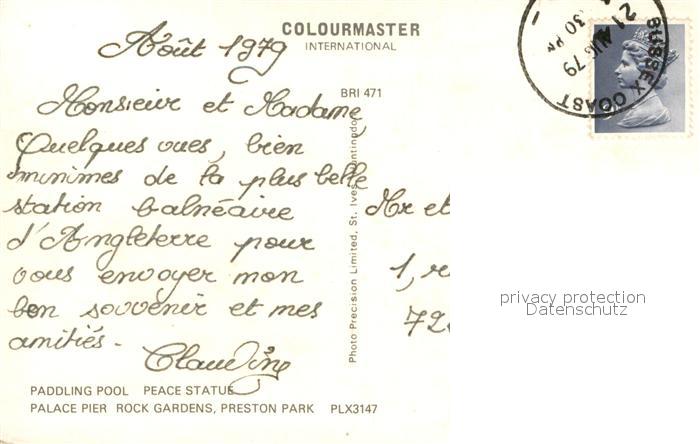 COLOURMASTER
INTERNATIONAL
BRI 471
Août 1979
Monsieur et Madame,
Quelques vues, bien
minimes de la plus belle
station balnéaire
d'Angleterre pour
vous envoyer mon
bon souvenir et mes
amitiés.
Claudine
Mr et
1, r
72
Photo Precision Limited, St. Ives, Huntingdon
SUSSEX COAST
30 PM
21 AUG 79
privacy protection
Datenschutz
PADDLING POOL PEACE STATUE
PALACE PIER ROCK GARDENS, PRESTON PARK PLX3147